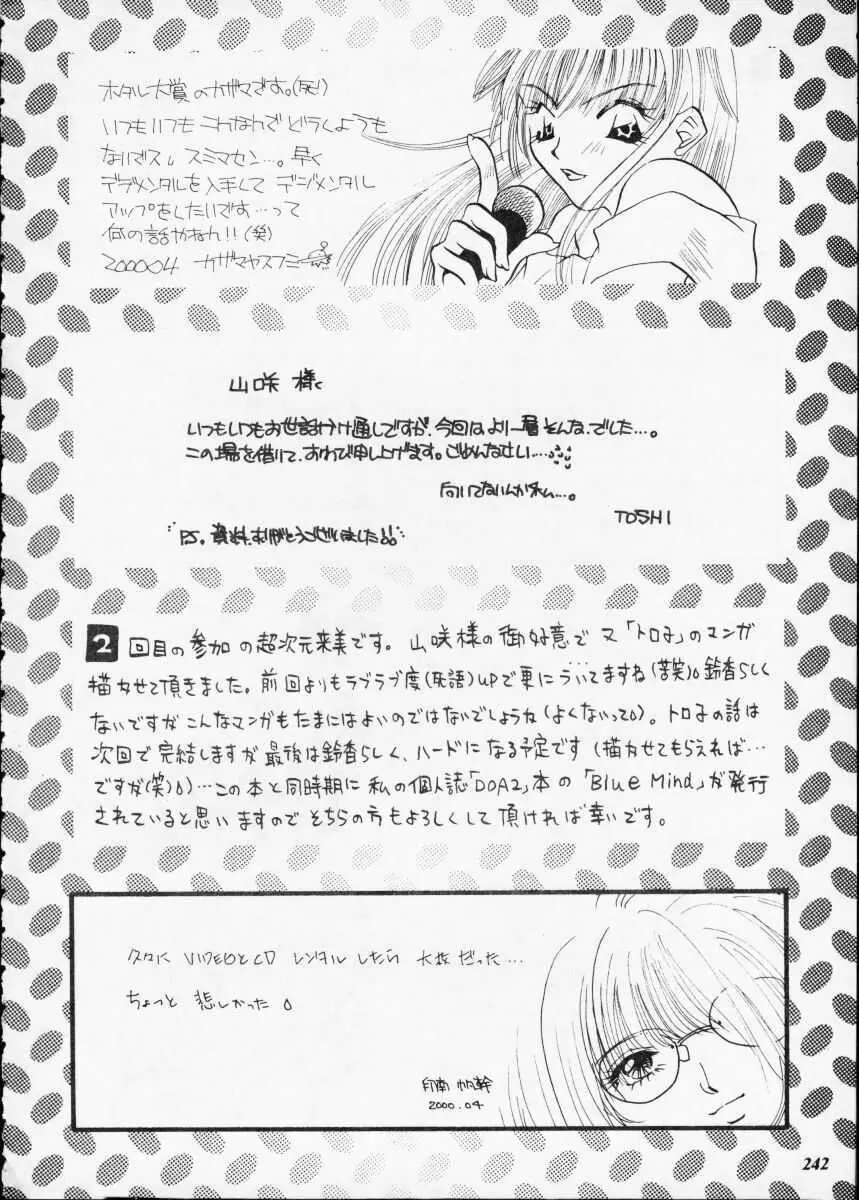 ホタル大賞のカザマです。(死!)
いつもいつもこんなんでどうしようも
ないデス スミマセン…。早く
デジメンタルを入手して デジメンタル
アップをしたいです…って
何の話かなれ!!(笑)
200004 カザマヤスフミ
山咲 様
いつもいつもお世話かけ通しですが、今回はより一層そんな、でした…。
この場を借りて、おわび申し上げます。ごめんなさい…
向いてないんかねん…。
TOSHI
PS. 資料、ありがとうございました!!
2回目の参加の超次元来美です。山咲様の御好意で又「トロ子」のマンガ
描かせて頂きました。前回よりもラブラブ度(死語)UPで更にういてますね(苦笑)。鈴香らしく
ないですがこんなマンガもたまにはよいのではないでしょうね(よくないって)。トロ子の話は
次回で完結しますが最後は鈴香らしく、ハードになる予定です(描かせてもらえれば…
ですが(笑))…この本と同時期に私の個人誌「DOA2」本の「Blue Mind」が発行
されていると思いますのでそちらの方もよろしくして頂ければ幸いです。
久々にVIDEOとCDレンタルしたら大変だった…
ちょっと悲しかった
印南 帆幹
2000.04
242